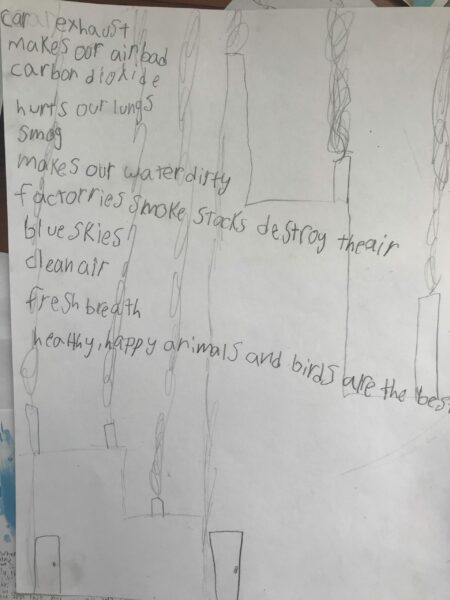 car exhaust
makes our air bad
carbon dioxide
hurts our lungs
smog
makes our water dirty
factorries smoke stacks destroy the air
blue skies
clean air
fresh breath
healthy, happy animals and birds are the bes